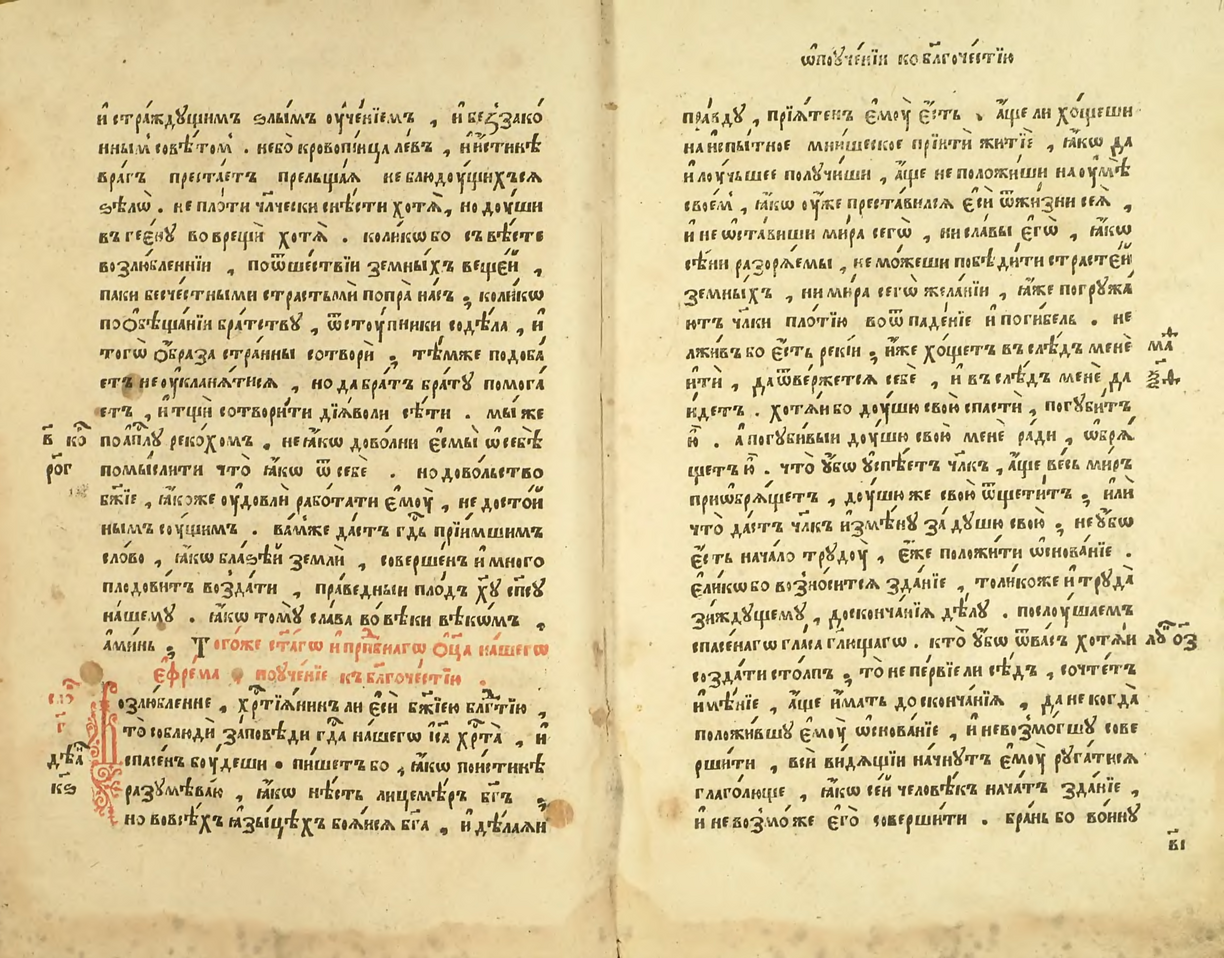 и҆ страждꙋщимъ ѕлымъ оу҆ченїемъ , и҆ беззако
ннымⸯ совѣтомⸯ . небо̀ кровопїица левъ , и҆ и҆стинѣ
врагъ престаетъ прельщаѧ неблюдоущихъсѧ
ѕѣлѡ . не плоти чл҃чески снѣсти хотѧ̀ , но доуши
въ геенꙋ воврещѝ хотѧ̀ . коликѡ бо съвѣсте
возлюбленнїи , поѿшествїи земныхъ вещей ,
паки бесчестными страстьмѝ попра̀ насъ ; коликѡ
пообѣщанїи братствꙋ , ѿстоупники содѣла , и҆
тогѡ образа странны сотворѝ ; тѣмже подоба
етъ не оу҆кланѧтисѧ , но да братъ братꙋ помога
етъ , и҆ тщѝ сотворити дїѧволи сѣти . мы же
в҃ ко҃
по а҆пл҃ꙋ рекохомъ , не ꙗ҆кѡ доволни е҆смы̀ ѡ҆ себѣ
рог
помыслити что̀ ꙗ҆кѡ ѿ себѐ . но довольство
бж҃їе , ꙗ҆коже оу҆довлѝ работати е҆моу̀ , не достой
нымъ соущимъ . вам же дастъ гд҃ь прїимшимъ
слово , ꙗ҆кѡ блаѕѣй землѝ , совершенъ и҆ много
плодовитъ воздати , праведныи плодъ хꙋ҃ сп҃сꙋ
нашемꙋ . ꙗ҆кѡ томꙋ̀ слава во вѣки вѣкѡмъ ,
а҆минь ; Тогоже ст҃агѡ и҆ прп҃бнагѡ оц҃а нашегѡ
е҆фрема поученїе къ бл҃гочестїю .
Возлюбленне , хр҃тїѧнинъ ли е҆сѝ бж҃їею бл҃гтїю ,
то соблюдѝ заповѣди гд҃а нашегѡ і҆с҃а хр҃та̀ , и҆
дѣѧ҃
спасенъ боудеши . пишетъ бо , ꙗ҆кѡ поистинѣ
разꙋмѣваю , ꙗ҆кѡ нѣсть лицемѣръ бг҃ъ ;
но во всѣхъ ꙗ҆зыцѣхъ боѧисѧ бг҃а , и҆ дѣлаѧи
ѡ҆ поꙋченїи ко бл҃гочестїю
правдꙋ , прїѧтенъ е҆моу̀ е҆сть . а҆ще ли хощеши
на испытное мнишеское прїити житїѐ , ꙗ҆кѡ да
и҆ лоучьшее получиши , а҆ще не положиши на оу҆мѣ
своемⸯ , ꙗ҆кѡ оу҆же преставилсѧ е҆сѝ ѿ жизни сеѧ̀ ,
и҆ не ѡ҆ставиши мира сегѡ̀ , ни славы е҆гѡ̀ , ꙗ҆кѡ
сѣни разорѧемы , не можеши побѣдити страстей
земныхъ , ни мира сегѡ̀ желанїи , ꙗ҆же погрꙋжа
ютъ чл҃ки плотїю во ѿпаденїе и҆ погибель . не
лживъ бо е҆сть рекїи ; и҆же хощетъ въ слѣдъ менѐ
ити , да ѿвержетсѧ себѐ , и҆ въ слѣдъ менѐ да
идетъ . хотѧи бо доушю свою̀ спасти , погꙋбитъ
ю҆̀ . а҆ погꙋбивыи доушю свою̀ менѐ ради , ѡ҆брѧ
щетъ ю҆̀ . что̀ ꙋ҆бѡ ꙋ҆спѣетъ чл҃къ , а҆ще весь миръ
приѡбрѧщетъ , доушю же свою̀ ѿщетитъ ; и҆лѝ
что̀ дастъ чл҃къ и҆змѣнꙋ за душю свою̀ ; не ꙋ҆бѡ
е҆сть начало трꙋдоу̀ , е҆же положити ѡ҆снованїе .
е҆ликѡ бо возноситсѧ зданїе , толикоже и҆ трꙋда̀
зиждꙋщемꙋ , до скончанїѧ дѣлꙋ . послоушаемъ
спасенагѡ гласа гл҃ющагѡ . кто̀ ꙋ҆бѡ ѿ васъ хотѧи
лꙋ҃ оз
создати столпъ ; то не первїе ли сѣдъ , сочтетъ
и҆мѣнїе , а҆ще и҆мать до скончанїѧ , да не когда̀
положившꙋ е҆моу̀ ѡ҆снованїе , и҆ невозмогшꙋ сове
ршити , всѝ видѧщїи начнꙋтъ е҆моу̀ рꙋгатисѧ
глаголюще , ꙗ҆кѡ сей человѣкъ начатъ зданїе ,
и҆ невозможе е҆го̀ совершити . брань бо воинꙋ
в҃і